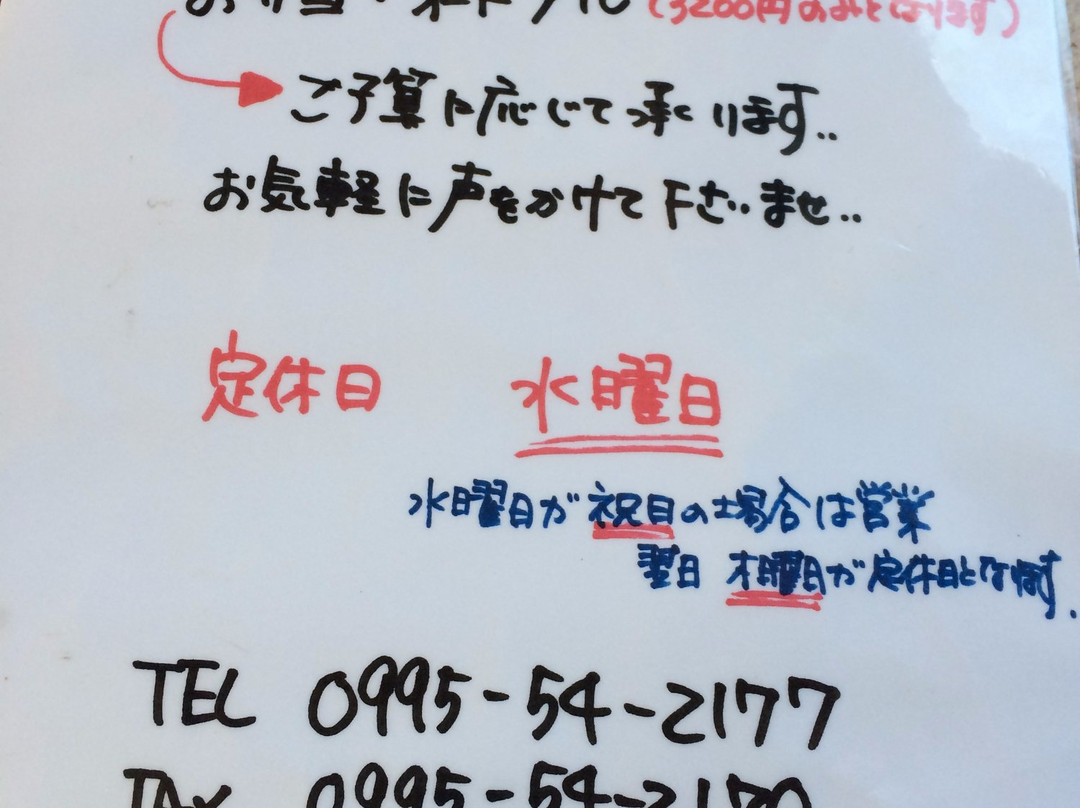 お弁当・オードブル (3200円のみとなります)
ご予算に応じて承ります..
お気軽に声をかけて下さいませ..
定休日 水曜日
水曜日が祝日の場合は営業
翌日 木曜日が定休日となります.
TEL 0995-54-2177
FAX 0995-54-2170